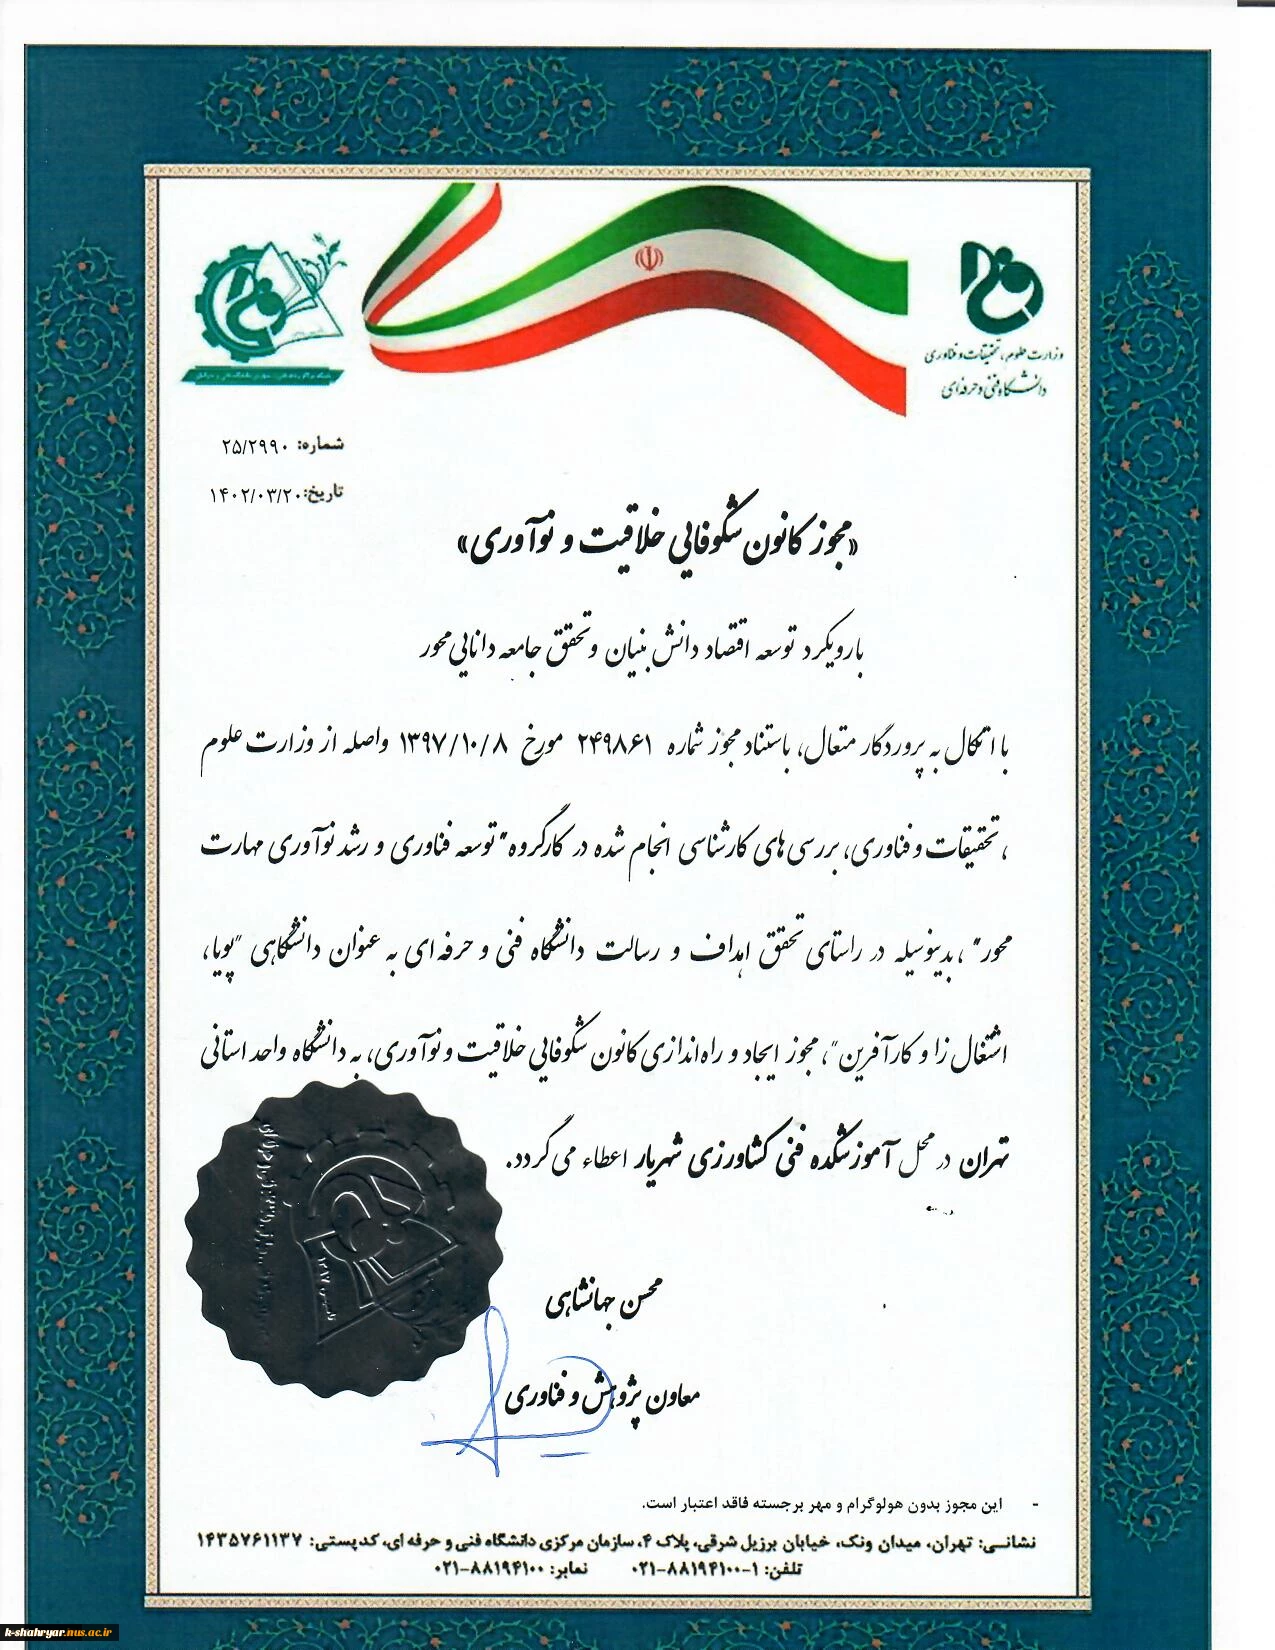 وزارت علوم، تحقیقات و فناوری
دانشگاه فنی و حرفه ای
شماره: ۲۵/۲۹۹۰
تاریخ: ۱۴۰۲/۰۳/۲۰
«مجوز کانون شکوفایی خلاقیت و نوآوری»
با رویکرد توسعه اقتصاد دانش بنیان و تحقق جامعه دانایی محور
با اتکال به پروردگار متعال، باستناد مجوز شماره ۲۴۹۸۶۱ مورخ ۱۳۹۷/۱۰/۸ واصله از وزارت علوم
، تحقیقات و فناوری، بررسی های کارشناسی انجام شده در کارگروه "توسعه فناوری و رشد نوآوری مهارت
محور" ،بدینوسیله در راستای تحقق اهداف و رسالت دانشگاه فنی و حرفه ای به عنوان دانشگاهی "پویا،
اشتغال زا و کارآفرین"، مجوز ایجاد و راه اندازی کانون شکوفایی خلاقیت و نوآوری، به دانشگاه واحد استانی
تهران در محل آموزشکده فنی کشاورزی شهریار اعطاء می گردد.
محسن جهانشاهی
معاون پژوهش و فناوری
- این مجوز بدون هولوگرام و مهر برجسته فاقد اعتبار است.
نشانی: تهران، میدان ونک، خیابان برزیل شرقی، پلاک ۴، سازمان مرکزی دانشگاه فنی و حرفه ای، کدپستی: ۱۴۳۵۷۶۱۱۳۷
تلفن: ۱-۸۸۱۹۴۱۰۰-۰۲۱ نمابر: ۸۸۱۹۴۱۰۰-۰۲۱
k-shahryar.nus.ac.ir